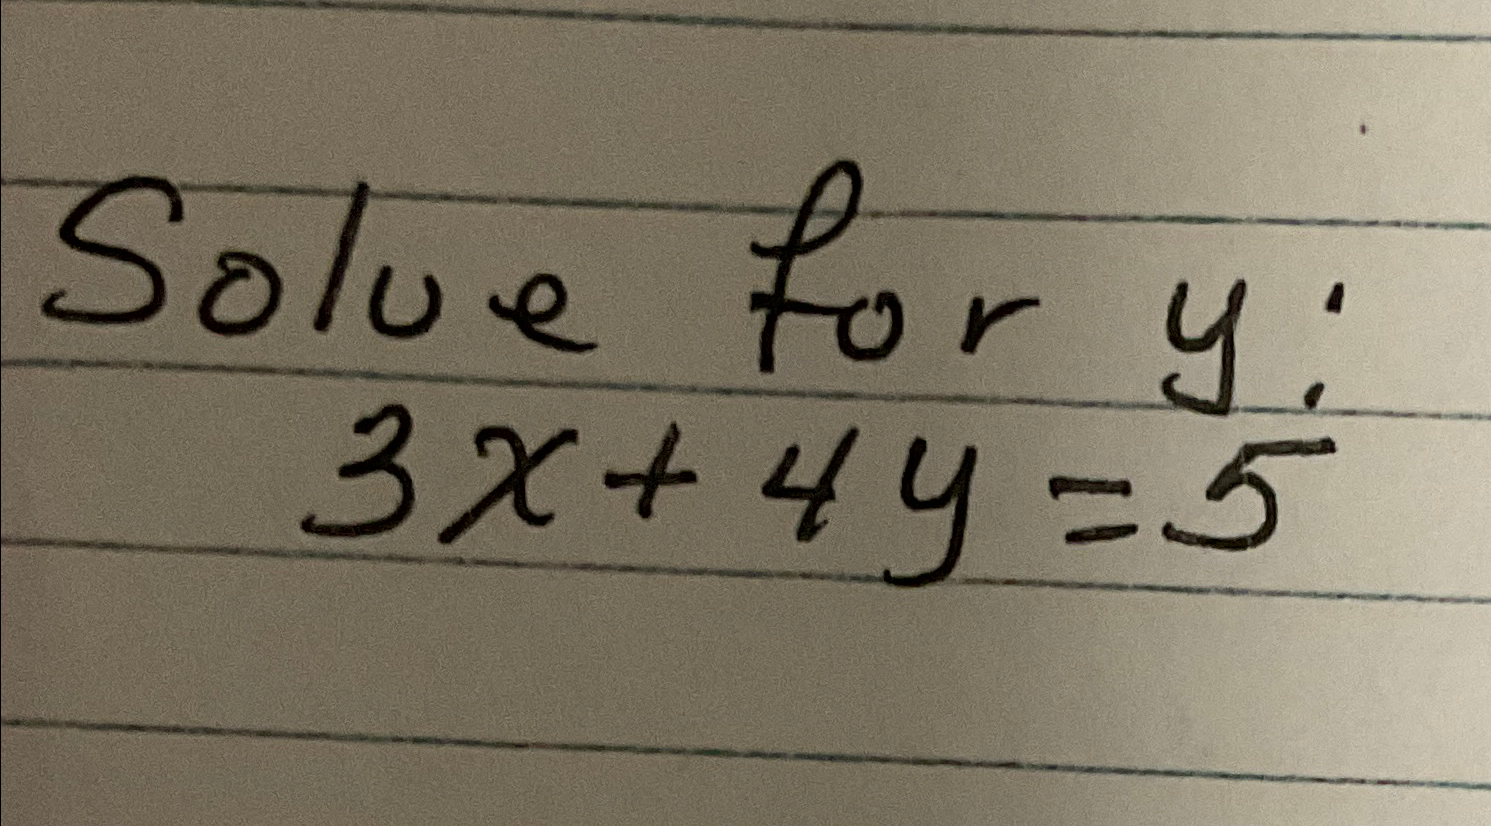 Solve for y:
3x + 4y = 5